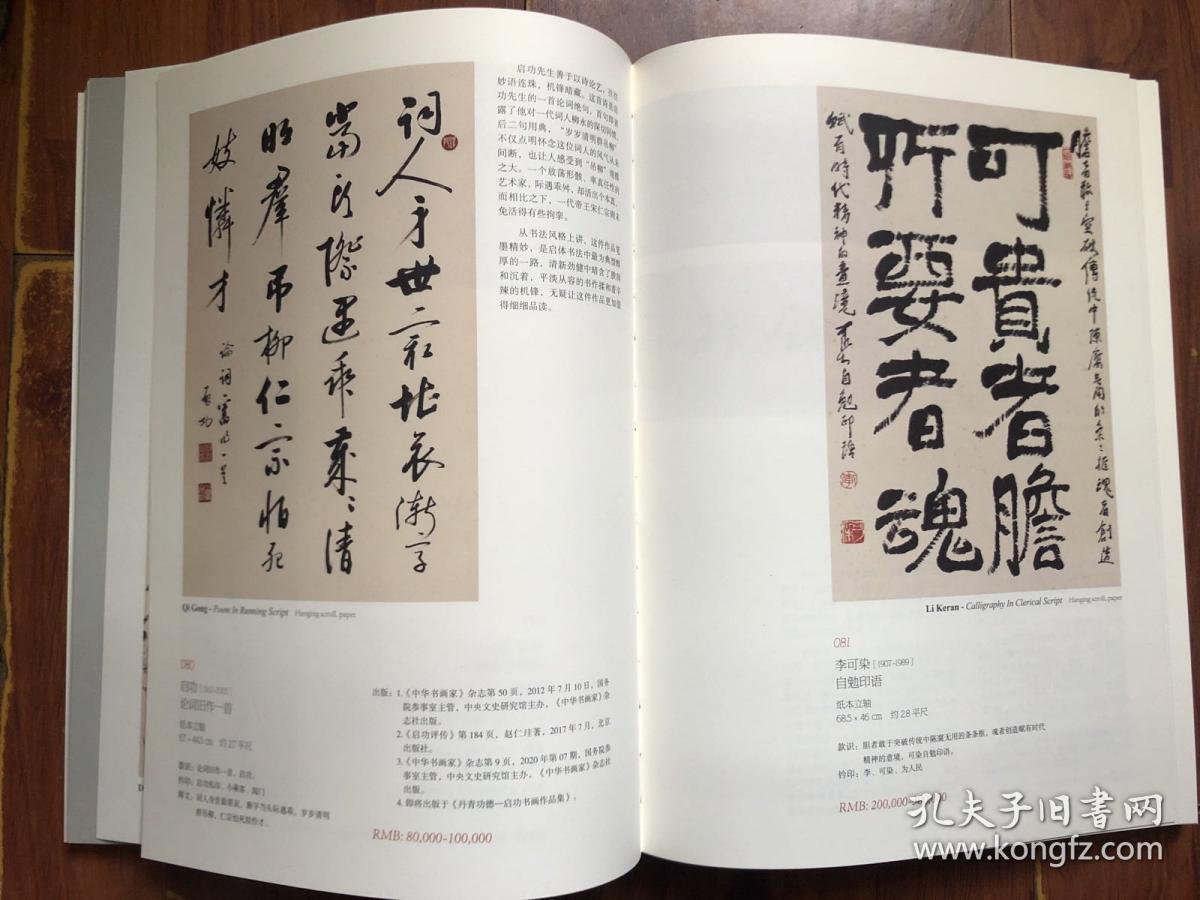 词人身世最堪哀渐字
当头际遇乖岁岁清
明群吊柳仁宗怕死
妓怜才
论词旧作一首
启功
启功先生善于以诗论艺，往往
妙语连珠，机锋暗藏。这首诗是启
功先生的一首论词绝句，首句即表
露了他对一代词人柳永的深切同情，
后二句用典，“岁岁清明群吊柳”
不仅点明怀念这位词人的风气从未
间断，也让人感受到“吊柳”规模
之大。一个放荡形骸、率真任性的
艺术家，际遇乖舛，却活出个本真，
而相比之下，一代帝王宋仁宗则未
免活得有些拘挛。
从书法风格上讲，这件作品笔
墨精妙，是启体书法中最为典型醇
厚的一路，清新劲健中暗含了
和沉着，平淡从容的书作揉和着辛
辣的机锋，无疑让这件作品更加值
得细细品读。
Qi Gong - Poem In Running Script Hanging scroll, paper
080
启功 [1912-2005]
论词旧作一首
纸本立轴
67×44.5 cm 约2.7平尺
款识：论词旧作一首，启功。
钤印：启功私印、小乘客、闻门
释文：词人身世最堪哀，渐字当头际遇乖。岁岁清明
群吊柳，仁宗怕死妓怜才。
出版：1.《中华书画家》杂志第 50 页，2012 年 7 月 10 日，国务
院参事室主管，中央文史研究馆主办，《中华书画家》杂
志社出版。
2.《启功评传》第 184 页，赵仁珪著，2017 年 7 月，北京
出版社。
3.《中华书画家》杂志第 9 页，2020 年第 07 期，国务院参
事室主管，中央文史研究馆主办，《中华书画家》杂志社
出版。
4. 即将出版于《丹青功德—启功书画作品集》。
RMB: 80,000-100,000
可貴者膽
所要者魂
膽者敢于突破傳統中陳腐無用的条条框魂者創造
赋有時代精神的意境 可染自勉印語
Li Keran - Calligraphy In Clerical Script Hanging scroll, paper
081
李可染 [1907-1989]
自勉印语
纸本立轴
68.5×46 cm 约2.8平尺
款识：胆者敢于突破传统中陈腐无用的条条框，魂者创造赋有时代
精神的意境，可染自勉印语。
钤印：李、可染、为人民
RMB: 200,000-
孔夫子旧书网
www.kongfz.com